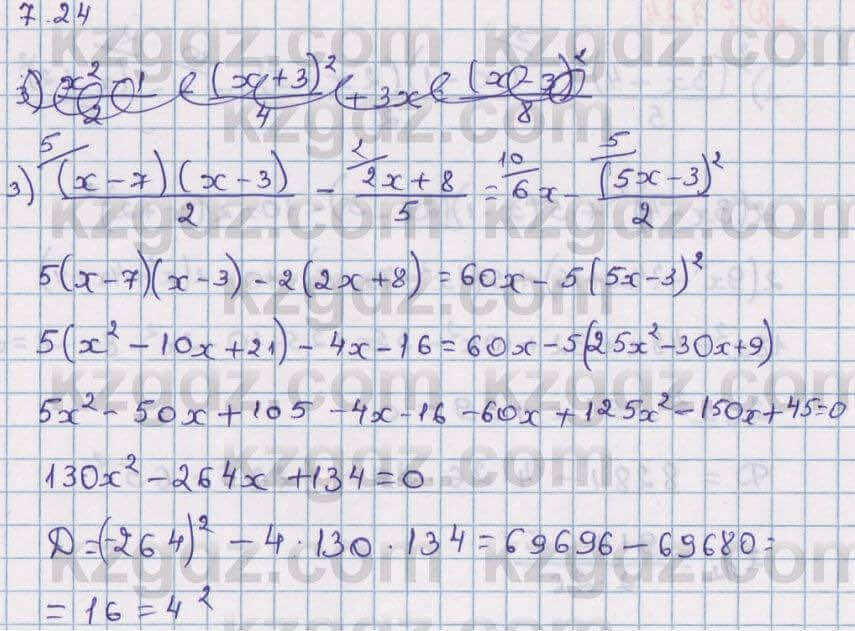 7.24
3) x²/2 (x+3)²/4 + 3x (x-3)²/8
3) ⁵/(x-7)(x-3)/2 - ²/2x+8/5 = ¹⁰/6x - ⁵/(5x-3)²/2
5(x-7)(x-3)-2(2x+8)=60x-5(5x-3)²
5(x²-10x+21)-4x-16=60x-5(25x²-30x+9)
5x²-50x+105-4x-16-60x+125x²-150x+45=0
130x²-264x+134=0
D=(-264)²-4·130·134=69696-69680=
=16=4²
kzgdz.com